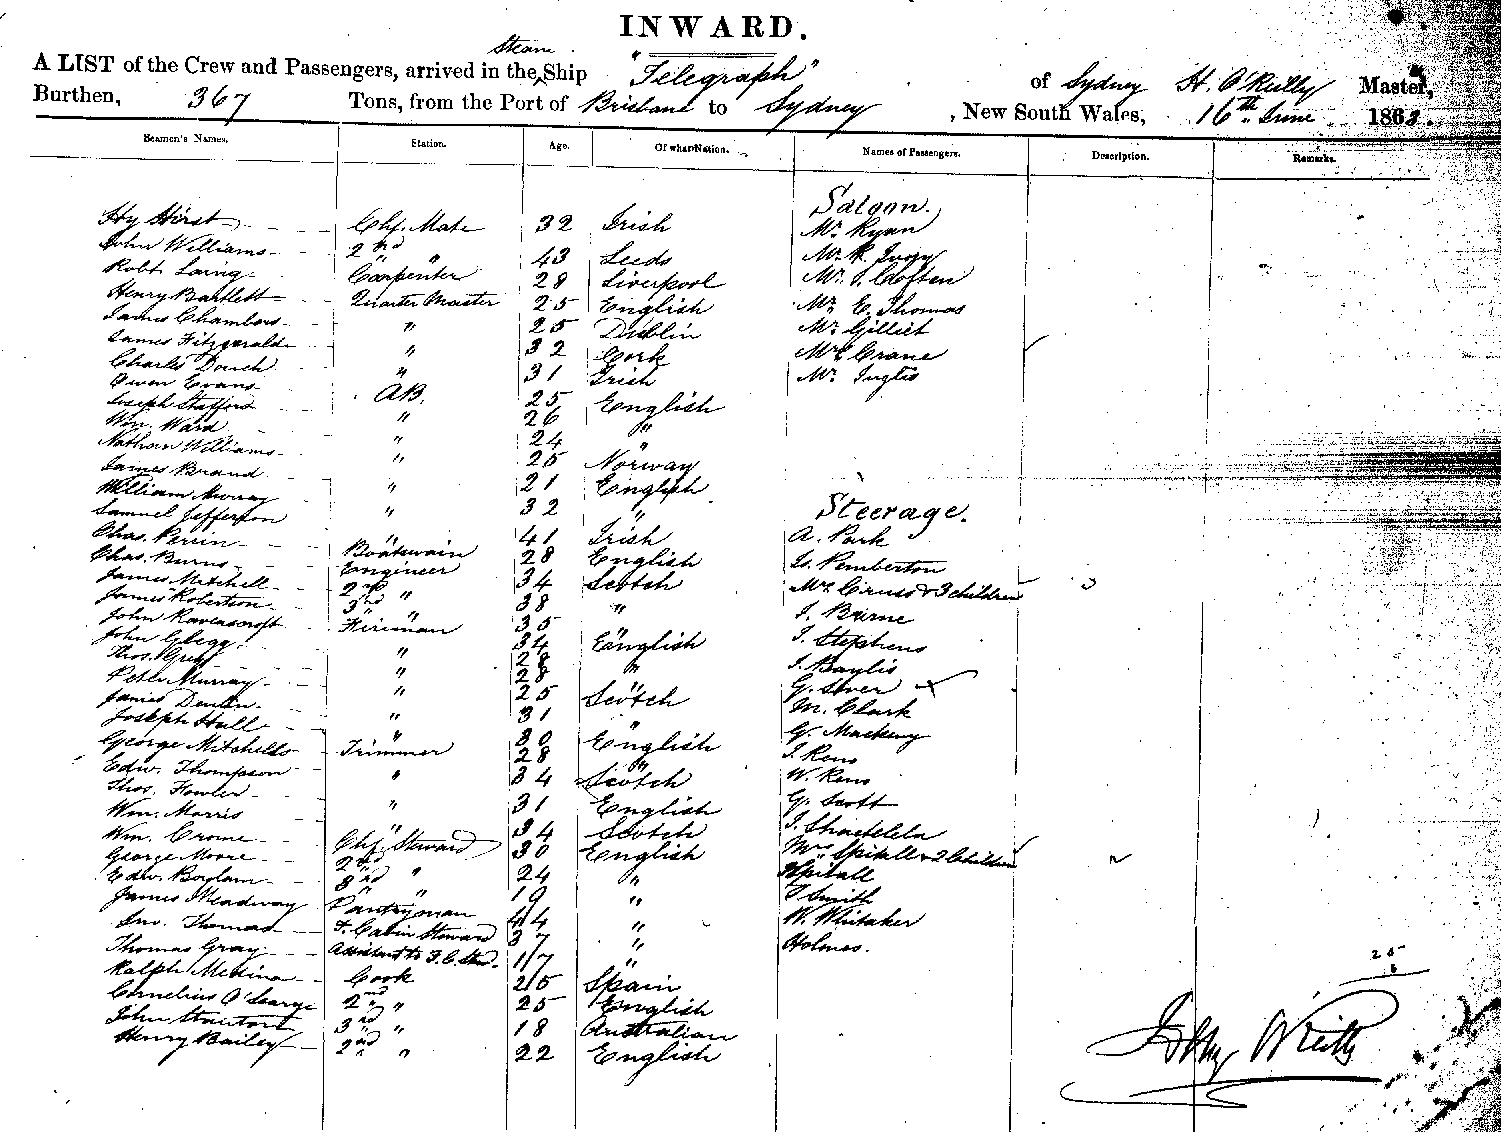 INWARD.
Steam
A LIST of the Crew and Passengers, arrived in the Ship "Telegraph" of Sydney H. O'Reilly Master,
Burthen, 367 Tons, from the Port of Brisbane to Sydney, New South Wales, 16th June 186
Seamen's Names. Station. Age. Of what Nation. Names of Passengers. Description. Remarks.
Saloon.
Hy Hirst Chf. Mate 32 Irish Mr. Ryan
John Williams 2nd " 43 Leeds Mr. R.
Robt. Laing Carpenter 28 Liverpool Mr.
Henry Bartlett Quarter Master 25 English Mr. E. Thomas
James Chambers " 25 Dublin Mr. Gilliet
James Fitzgerald " 32 Cork Crane
Charles " 31 Irish Mr. Inglis
Owen Evans AB. 25 English
Joseph Stafford " 26 "
Wm. Ward " 24 "
Nathan Williams " 25 Norway
James Brand " 21 English
William Murray " 32 "
Steerage.
Samuel Jefferson " 41 Irish A. Park
Chas. Perrin Boatswain 28 English Pemberton
Chas. Burns Engineer 34 Scotch Mrs. & 3 children
James Mitchell 2nd " 38 "
James Robertson 3rd " 35 " J.
John Ravenscroft Fireman 34 English J. Stephens
John Glegg " 28 " J. Baylis
Thos. " 28 " G.
Peter Murray " 25 Scotch M. Clark
James " 31 " G.
Joseph Hall " 30 English J. Rens
George Mitchell Trimmer 28 " W. Rens
Edw. Thompson " 34 Scotch G. Scott
Thos. Fowler " 31 English J.
Wm. Morris " 34 Scotch Mrs. Spitall & 2 Children
Wm. Crome Chf. Steward 30 English Spitall
George Moore 2nd " 24 " Smith
Edw. 3rd " 19 " W. Whitaker
James Meadway Pantryman 44 " Holmes.
Jno. Thomas F. Cabin Steward 37 "
Thomas Gray Assistant to F. C. Stwd. 17 "
Ralph Medina Cook 25 Spain
Cornelius O'Leary 2nd " 25 English
John 3rd " 18 Australian
Henry Bailey 2nd " 22 English
25
6